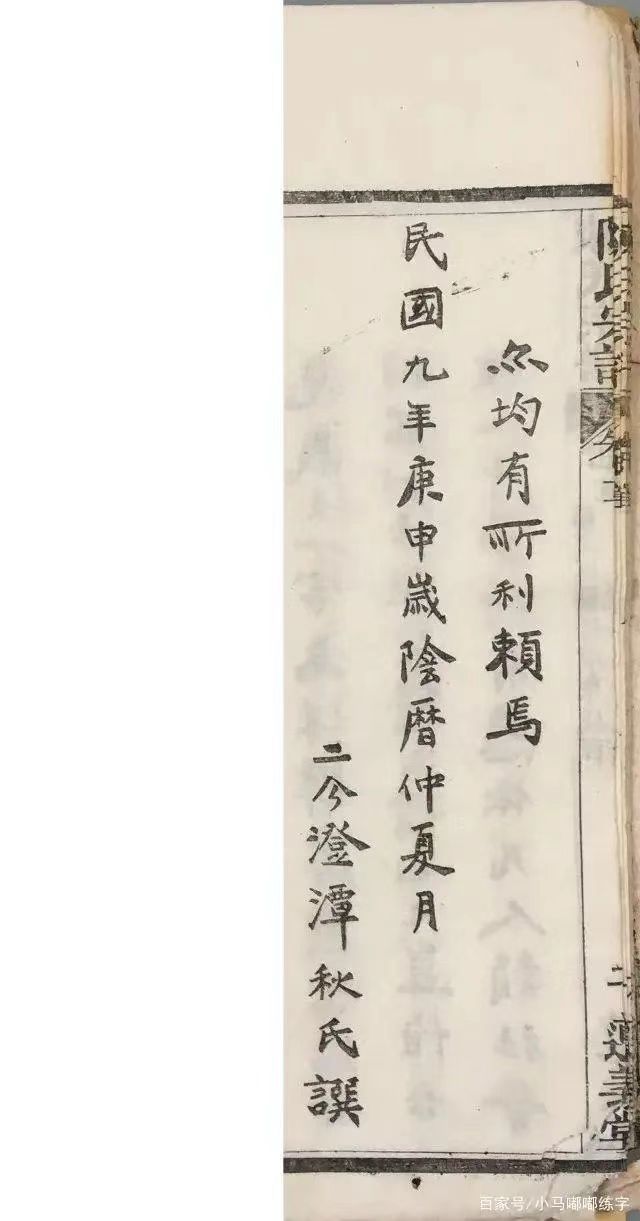 陳氏宗譜
卷首
二
義堂
尔均有所利賴焉
民國九年庚申歲陰曆仲夏月
二分澄潭秋氏譔
百家号/小马嘟嘟练字